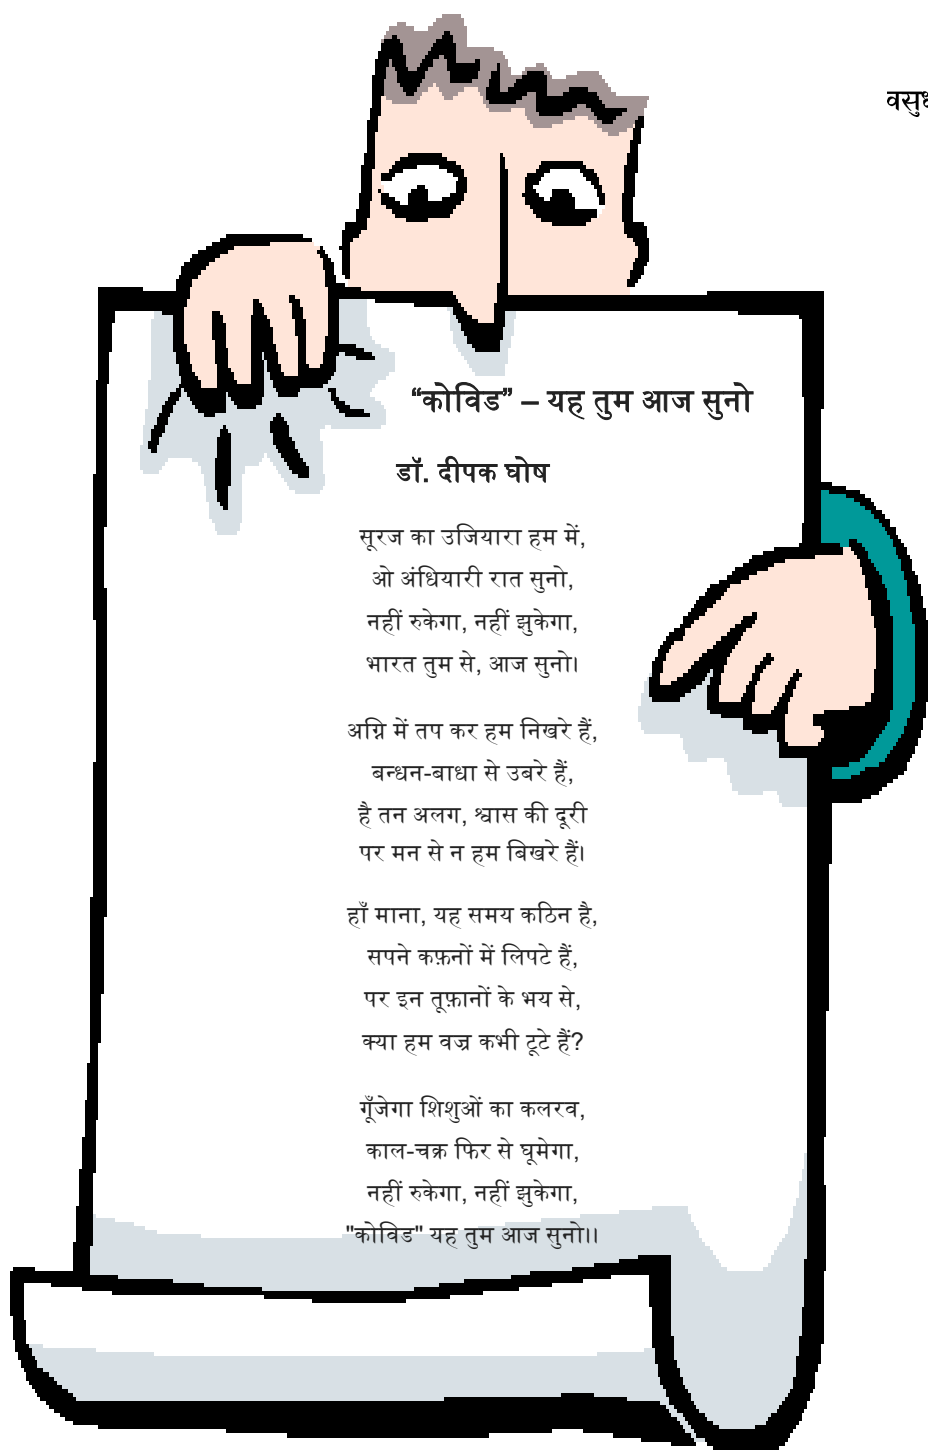 “कोविड” – यह तुम आज सुनो
डॉ. दीपक घोष
सूरज का उजियारा हम में,
ओ अंधियारी रात सुनो,
नहीं रुकेगा, नहीं झुकेगा,
भारत तुम से, आज सुनो।
अग्नि में तप कर हम निखरे हैं,
बन्धन-बाधा से उबरे हैं,
है तन अलग, श्वास की दूरी
पर मन से न हम बिखरे हैं।
हाँ माना, यह समय कठिन है,
सपने कफ़नों में लिपटे हैं,
पर इन तूफ़ानों के भय से,
क्या हम वज्र कभी टूटे हैं?
गूँजेगा शिशुओं का कलरव,
काल-चक्र फिर से घूमेगा,
नहीं रुकेगा, नहीं झुकेगा,
"कोविड" यह तुम आज सुनो।।